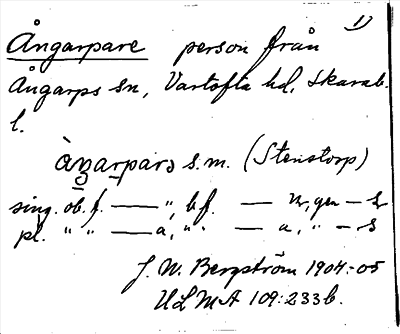 1)
Ångarpare person från
Ångarps sn, Vartofta hd, Skarab.
l.
àŋarparə s.m. (Stenstorp)
sing. ob. f. — „ b.f. — n, gen — s
pl. „ „ — a, „ „ — a, „ — s
J. W. Bergström 1904-05
ULMA 109:233b.